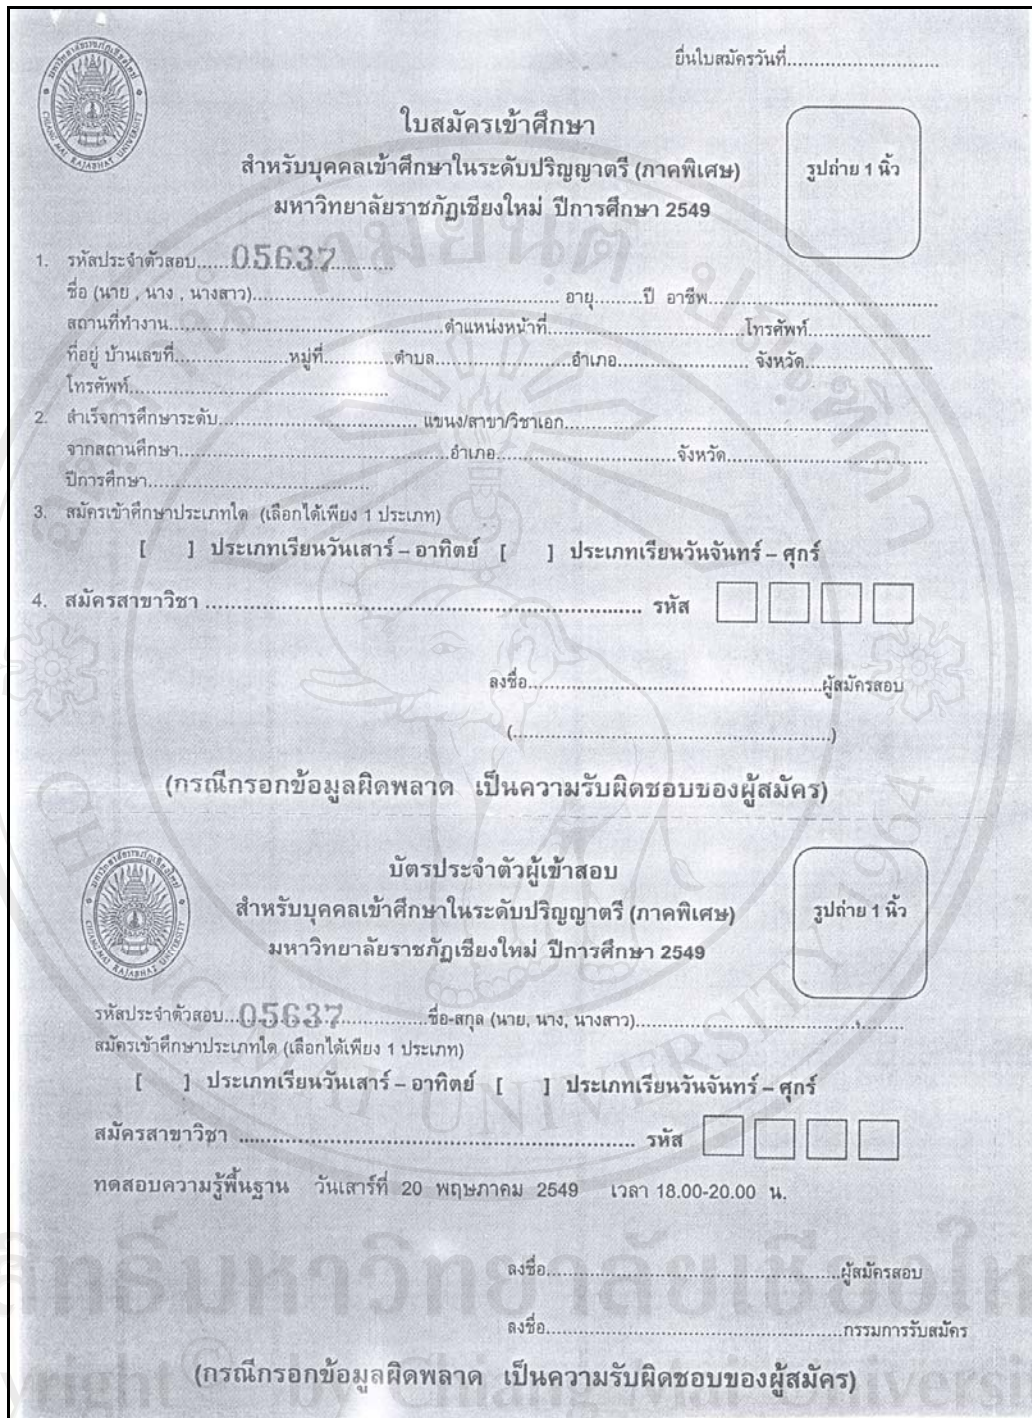 ยื่นใบสมัครวันที่............................
ใบสมัครเข้าศึกษา
สำหรับบุคคลเข้าศึกษาในระดับปริญญาตรี (ภาคพิเศษ)
รูปถ่าย 1 นิ้ว
มหาวิทยาลัยราชภัฏเชียงใหม่ ปีการศึกษา 2549
CHIANG MAI RAJABHAT UNIVERSITY
1. รหัสประจำตัวสอบ.......05637............
ชื่อ (นาย , นาง , นางสาว)........................................................ อายุ.........ปี อาชีพ..........................................
สถานที่ทำงาน..................................................ตำแหน่งหน้าที่....................................โทรศัพท์......................
ที่อยู่ บ้านเลขที่.....................หมู่ที่.............ตำบล.........................อำเภอ........................ จังหวัด........................
โทรศัพท์...............................................
2. สำเร็จการศึกษาระดับ..................................... แขนง/สาขา/วิชาเอก..................................................................
จากสถานศึกษา.................................................อำเภอ.................................จังหวัด.....................................
ปีการศึกษา.........................................
3. สมัครเข้าศึกษาประเภทใด (เลือกได้เพียง 1 ประเภท)
[ ] ประเภทเรียนวันเสาร์ – อาทิตย์ [ ] ประเภทเรียนวันจันทร์ – ศุกร์
4. สมัครสาขาวิชา .................................................................... รหัส
ลงชื่อ......................................................ผู้สมัครสอบ
(..........................................................)
(กรณีกรอกข้อมูลผิดพลาด เป็นความรับผิดชอบของผู้สมัคร)
บัตรประจำตัวผู้เข้าสอบ
สำหรับบุคคลเข้าศึกษาในระดับปริญญาตรี (ภาคพิเศษ)
รูปถ่าย 1 นิ้ว
มหาวิทยาลัยราชภัฏเชียงใหม่ ปีการศึกษา 2549
CHIANG MAI RAJABHAT UNIVERSITY
รหัสประจำตัวสอบ...05637................ชื่อ-สกุล (นาย, นาง, นางสาว).................................................
สมัครเข้าศึกษาประเภทใด (เลือกได้เพียง 1 ประเภท)
[ ] ประเภทเรียนวันเสาร์ – อาทิตย์ [ ] ประเภทเรียนวันจันทร์ – ศุกร์
สมัครสาขาวิชา .............................................................. รหัส
ทดสอบความรู้พื้นฐาน วันเสาร์ที่ 20 พฤษภาคม 2549 เวลา 18.00-20.00 น.
ลงชื่อ......................................................ผู้สมัครสอบ
ลงชื่อ......................................................กรรมการรับสมัคร
(กรณีกรอกข้อมูลผิดพลาด เป็นความรับผิดชอบของผู้สมัคร)